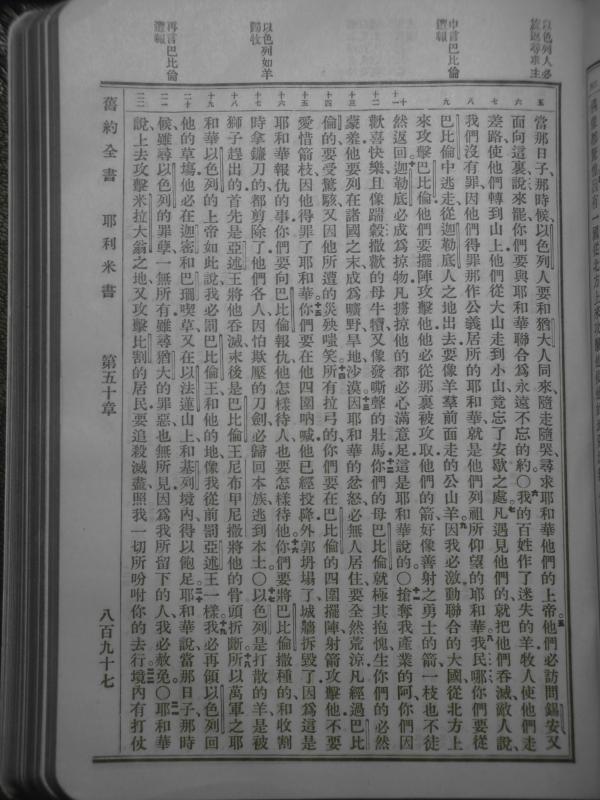 以色列人必
旋返尋求主
申言巴比倫
遭報
以色列如羊
歸牧
再言巴比倫
遭報
當那日子、那時候、以色列人要和猶大人同來、隨走隨哭、尋求耶和華他們的上帝、他們必訪問錫安、又
面向這裏說、來罷、你們要與耶和華聯合為永遠不忘的約。○我的百姓作了迷失的羊、牧人使他們走
差路、使他們轉到山上、他們從大山走到小山、竟忘了安歇之處。凡遇見他們的、就把他們吞滅、敵人說、
我們沒有罪、因他們得罪那作公義居所的耶和華、就是他們列祖所仰望的耶和華。我民哪、你們要從
巴比倫中逃走、從迦勒底人之地出去、要像羊羣前面走的公山羊。因我必激動聯合的大國、從北方上
來攻擊巴比倫、他們要擺陣攻擊他、他必從那裏被攻取、他們的箭、好像善射之勇士的箭、一枝也不徒
然返回。迦勒底必成為掠物、凡擄掠他的都必心滿意足、這是耶和華說的。○搶奪我產業的阿、你們因
歡喜快樂、且像踹穀撒歡的母牛犢、又像發嘶聲的壯馬、你們的母巴比倫、就極其抱愧、生你們的必然
蒙羞、他要列在諸國之末、成為曠野、旱地、沙漠。因耶和華的忿怒、必無人居住、要全然荒涼、凡經過巴比
倫的要受驚駭、又因他所遭的災殃嗤笑。所有拉弓的、你們要在巴比倫的四圍擺陣、射箭攻擊他、不要
愛惜箭枝、因他得罪了耶和華。你們要在他四圍吶喊、他已經投降、外郭坍塌了、城牆拆毀了、因為這是
耶和華報仇的事、你們要向巴比倫報仇、他怎樣待人、也要怎樣待他。你們要將巴比倫撒種的、和收割
時拿鐮刀的、都剪除了、他們各人因怕欺壓的刀劍、必歸回本族、逃到本土。○以色列是打散的羊、是被
獅子趕出的、首先是亞述王將他吞滅、末後是巴比倫王尼布甲尼撒將他的骨頭折斷。所以萬軍之耶
和華以色列的上帝如此說、我必罰巴比倫王和他的地、像我從前罰亞述王一樣。我必再領以色列回
他的草場、他必在迦密和巴珊喫草、又在以法蓮山上、和基列境內、得以飽足。耶和華說、當那日子、那時
候、雖尋以色列的罪孽、一無所有、雖尋猶大的罪惡、也無所見、因為我所留下的人、我必赦免。○耶和華
說、上去攻擊米拉大翁之地、又攻擊比割的居民、要追殺滅盡、照我一切所吩咐你的去行。境內有打仗
舊約全書　耶利米書　第五十章　八百九十七